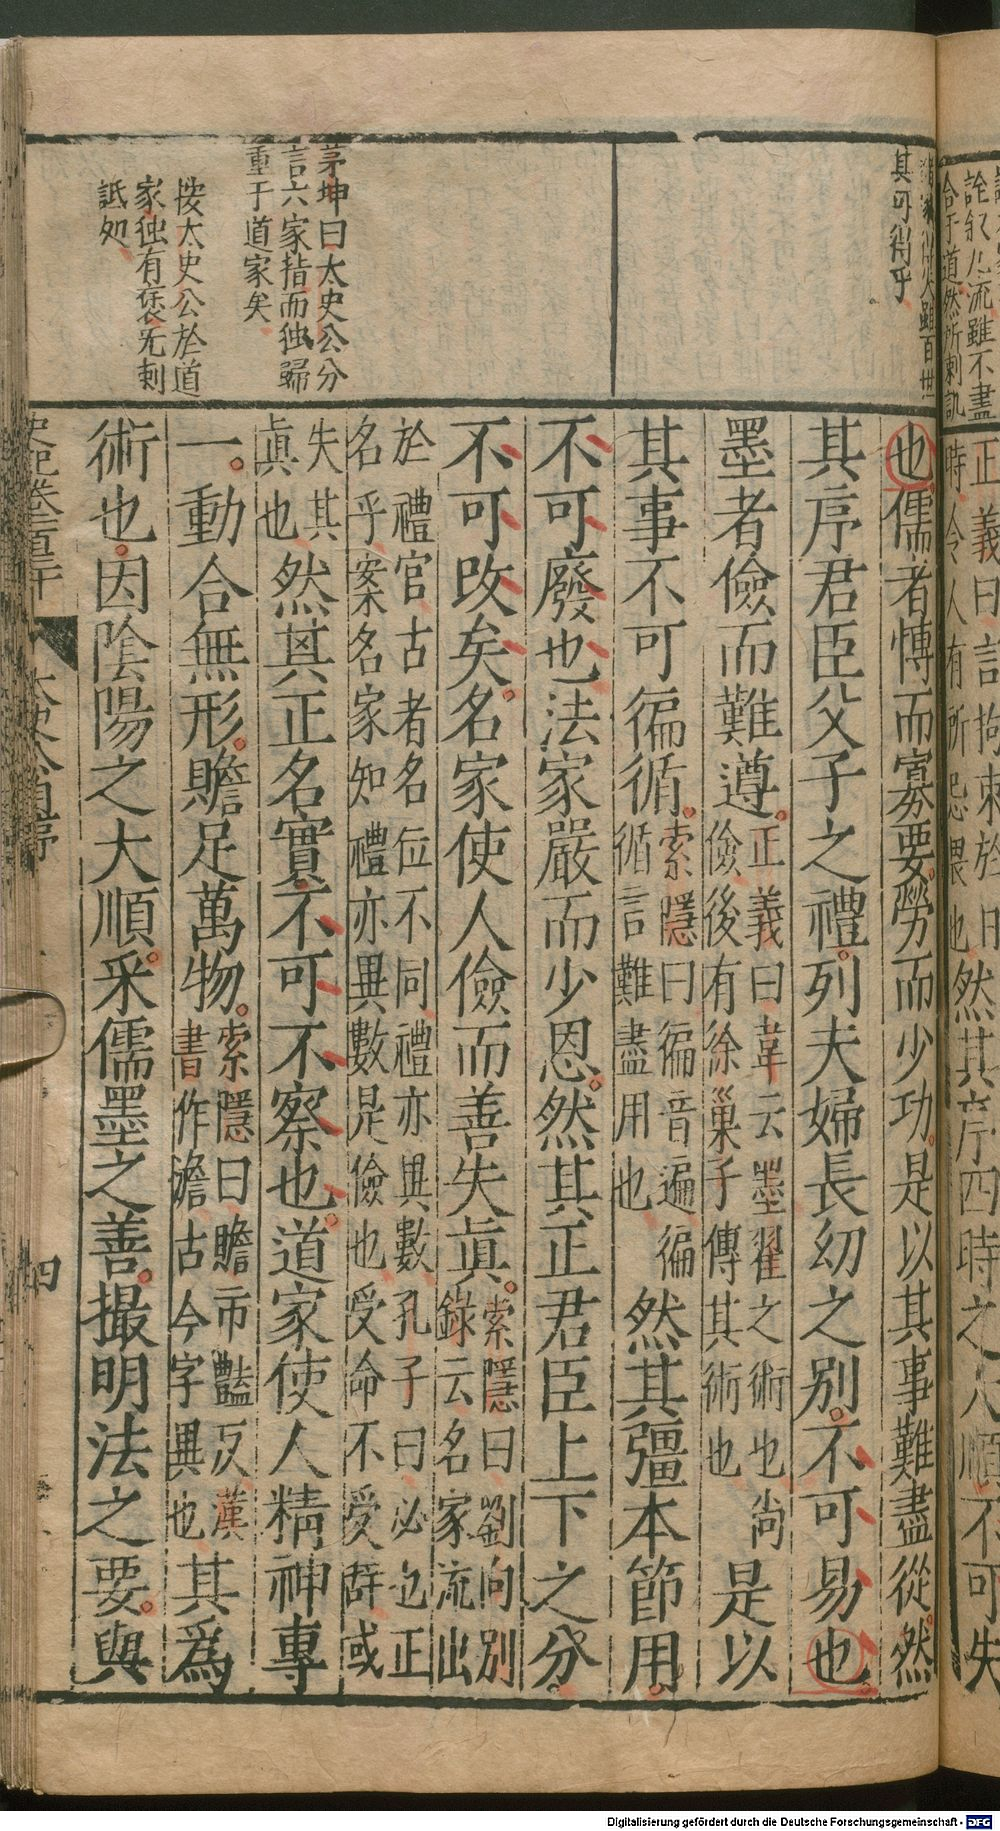 詮叙八流雖不盡
合于道然所刺譏
正義曰言拘束於日
時令人有所忌畏也然其序四時之大順不可失
雖百世
其可得乎
茅坤曰太史公分
言六家指而独歸
重于道家矣
按太史公於道
家独有褒无刺
詆処
也儒者慱而寡要勞而少功是以其事難盡從然
其序君臣父子之禮列夫婦長幼之別不可易也
墨者儉而難遵
正義曰韋云墨翟之術也尚
儉後有徐巢子傳其術也
是以
其事不可徧循
索隱曰徧音遍徧
循言難盡用也
然其彊本節用
不可廢也法家嚴而少恩然其正君臣上下之分
不可改矣名家使人儉而善失眞
索隱曰劉向別
錄云名家流出
於禮官古者名位不同禮亦異數孔子曰必也正
名乎案名家知禮亦異數是儉也受命不受辭或
失其
眞也
然其正名實不可不察也道家使人精神專
一動合無形贍足萬物
索隱曰贍市豔反漢
書作澹古今字異也
其爲
術也因陰陽之大順采儒墨之善撮明法之要與
史記卷一百三十
太史公自序
四
Digitalisierung gefördert durch die Deutsche Forschungsgemeinschaft - DFG